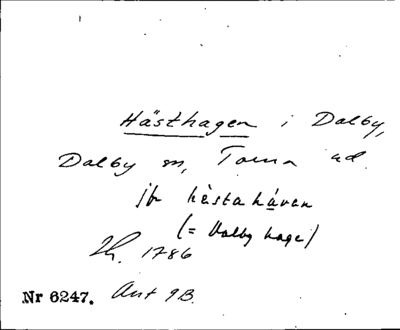 Hästhagen i Dalby,
Dalby sn, Torna hd.
jfr hèstahávan
(= Dalby hage)
Lh. 1786
Nr 6247. Ant 9B.